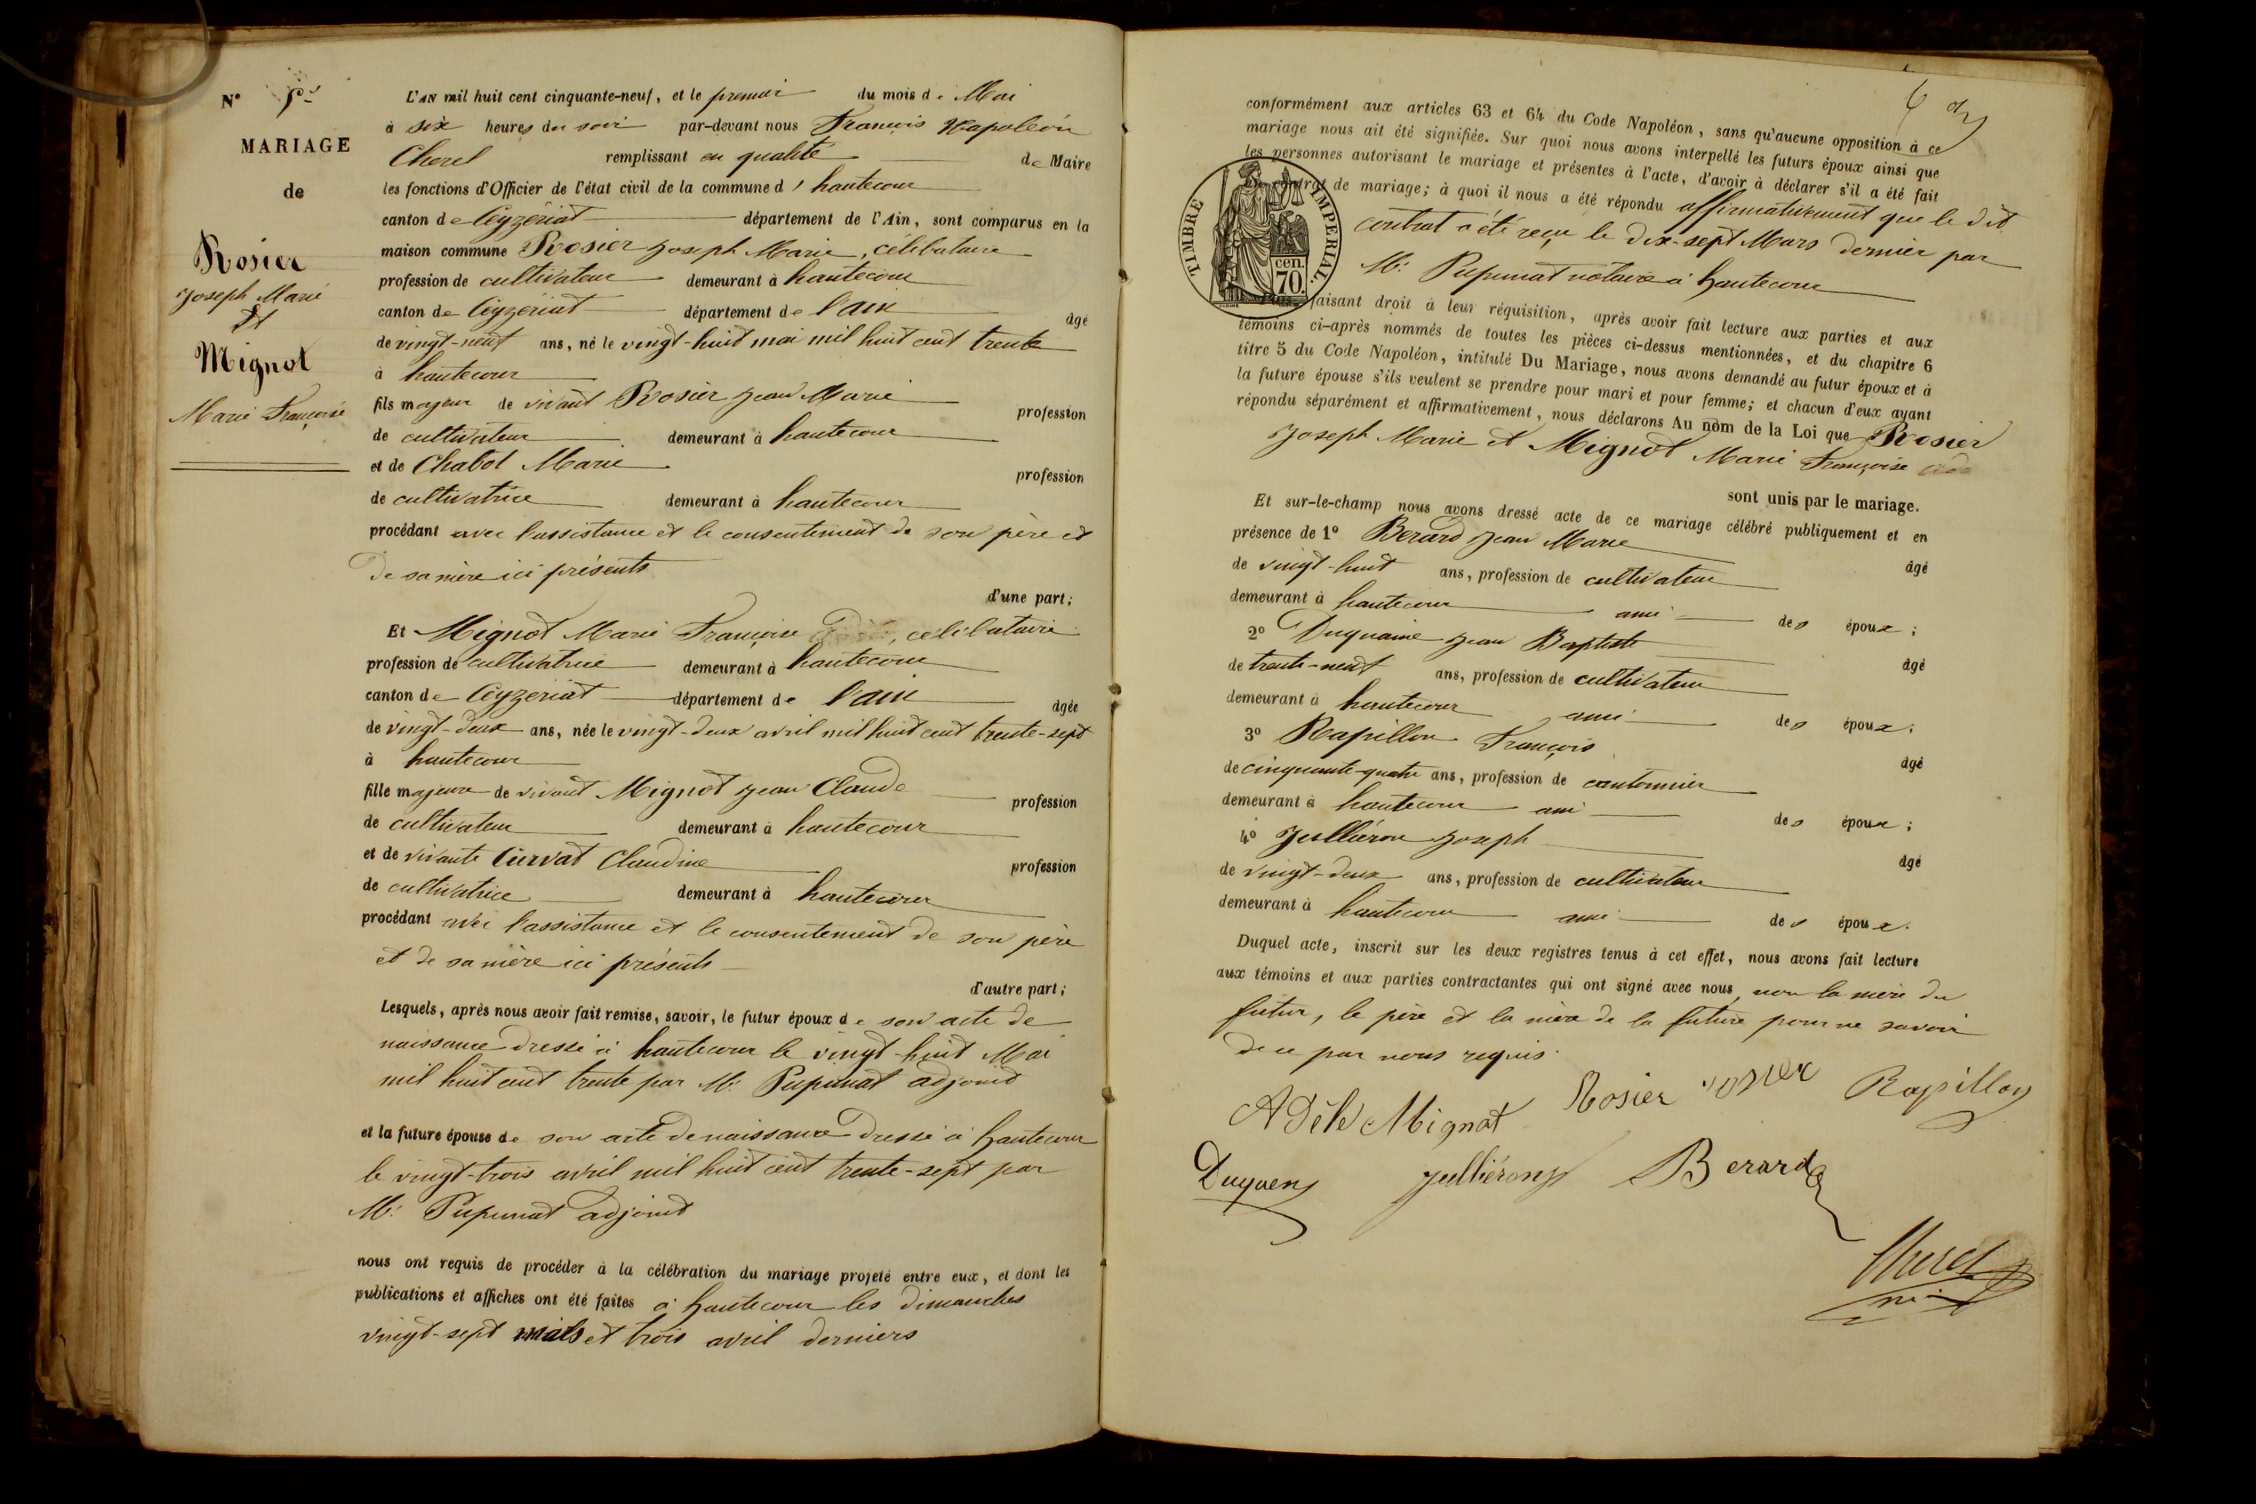 N° 5
MARIAGE
de
Rosier
Joseph Marie
Et
Mignot
Marie Françoise
L'AN mil huit cent cinquante-neuf, et le premier du mois de Mai
à six heures du soir par-devant nous François Napoléon
Chorel remplissant en qualité de Maire
les fonctions d'Officier de l'état civil de la commune d'hautecour
canton de Ceyzériat département de l'Ain, sont comparus en la
maison commune Rosier Joseph Marie, célibataire
profession de cultivateur demeurant à hautecour
canton de Ceyzériat département de l'ain âgé
de vingt-neuf ans, né le vingt-huit mai mil huit cent trente
à hautecour
fils majeur de vivant Rosier Jean Marie profession
de cultivateur demeurant à hautecour
et de Chabot Marie profession
de cultivatrice demeurant à hautecour
procédant avec l'assistance et le consentement de son père et
de sa mère ici présents
d'une part;
Et Mignot Marie Françoise , célibataire
profession de cultivatrice demeurant à hautecour
canton de Ceyzériat département de l'ain âgée
de vingt-deux ans, née le vingt-deux avril mil huit cent trente-sept
à hautecour
fille majeure de vivant Mignot Jean Claude profession
de cultivateur demeurant à hautecour
et de vivante Curvat Claudine profession
de cultivatrice demeurant à hautecour
procédant avec l'assistance et le consentement de son père
et de sa mère ici présents
d'autre part;
Lesquels, après nous avoir fait remise, savoir, le futur époux de son acte de
naissance dressé à hautecour le vingt-huit Mai
mil huit cent trente par Mr Pupunat adjoint
et la future épouse de son acte de naissance dressé à hautecour
le vingt-trois avril mil huit cent trente-sept par
Mr Pupunat adjoint
nous ont requis de procéder à la célébration du mariage projeté entre eux, et dont les
publications et affiches ont été faites à hautecour les dimanches
vingt-sept mars et trois avril derniers
6
conformément aux articles 63 et 64 du Code Napoléon, sans qu'aucune opposition à ce
mariage nous ait été signifiée. Sur quoi nous avons interpellé les futurs époux ainsi que
les personnes autorisant le mariage et présentes à l'acte, d'avoir à déclarer s'il a été fait
contrat de mariage; à quoi il nous a été répondu affirmativement que le dit
contrat a été reçu le dix-sept Mars dernier par
Mr Pupunat notaire à hautecour
TIMBRE IMPERIAL.
cen.
70.
faisant droit à leur réquisition, après avoir fait lecture aux parties et aux
témoins ci-après nommés de toutes les pièces ci-dessus mentionnées, et du chapitre 6
titre 5 du Code Napoléon, intitulé Du Mariage, nous avons demandé au futur époux et à
la future épouse s'ils veulent se prendre pour mari et pour femme; et chacun d'eux ayant
répondu séparément et affirmativement, nous déclarons Au nom de la Loi que Rosier
Joseph Marie et Mignot Marie Françoise
sont unis par le mariage.
Et sur-le-champ nous avons dressé acte de ce mariage célébré publiquement et en
présence de 1° Berard Jean Marie âgé
de vingt-huit ans, profession de cultivateur
demeurant à hautecour ami des époux;
2° Duquaine Jean Baptiste âgé
de trente-neuf ans, profession de cultivateur
demeurant à hautecour ami des époux;
3° Rapillon François âgé
de cinquante-quatre ans, profession de cantonnier
demeurant à hautecour ami des époux;
4° Julliéron Joseph âgé
de vingt-deux ans, profession de cultivateur
demeurant à hautecour ami des époux.
Duquel acte, inscrit sur les deux registres tenus à cet effet, nous avons fait lecture
aux témoins et aux parties contractantes qui ont signé avec nous, non la mère du
futur, le père et la mère de la future pour ne savoir
de ce par nous requis.
Adèle Mignot Rosier rosier Rapillon
Duquen Julliéron Berard
Chorel